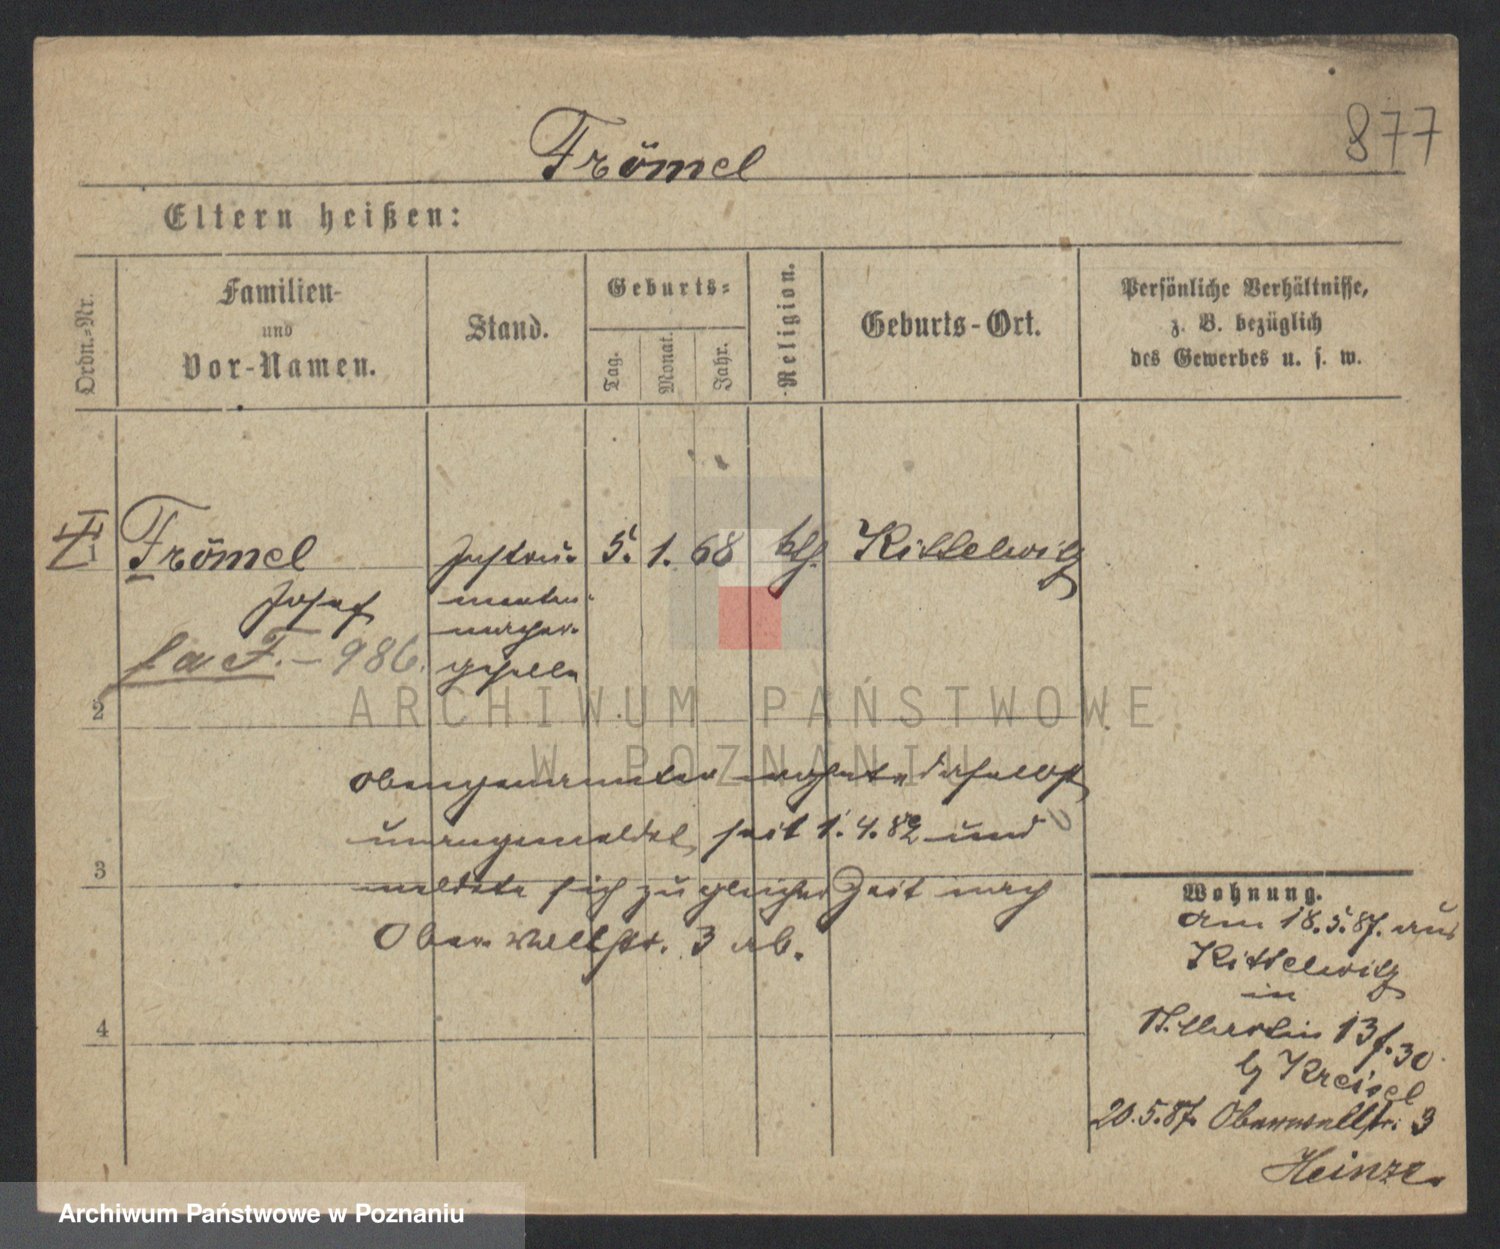 877
Frömel
Eltern heißen:
Ordn.-Nr.
Familien-
und
Vor-Namen.
Stand.
Geburts-
Tag.
Monat.
Jahr.
Religion.
Geburts-Ort.
Persönliche Verhältnisse,
z. B. bezüglich
des Gewerbes u. s. w.
1
Frömel
Josef
Instru-
menten-
macher-
geselle
5. 1. 68
kth.
Kittelwitz
986.
2
ARCHIWUM PAŃSTWOWE
W POZNANIU
obengenannter wohnte daselbst
unangemeldet seit 1.4.89 und
3
meldete sich zu gleicher Zeit nach
Ober Wallstr. 3 ab.
4
Wohnung.
am 18.5.87. aus
Kittelwitz
in
St. Martin 13 f. 30
by Kreisel
20.5.87. Oberwallstr. 3
Heinze.
Archiwum Państwowe w Poznaniu